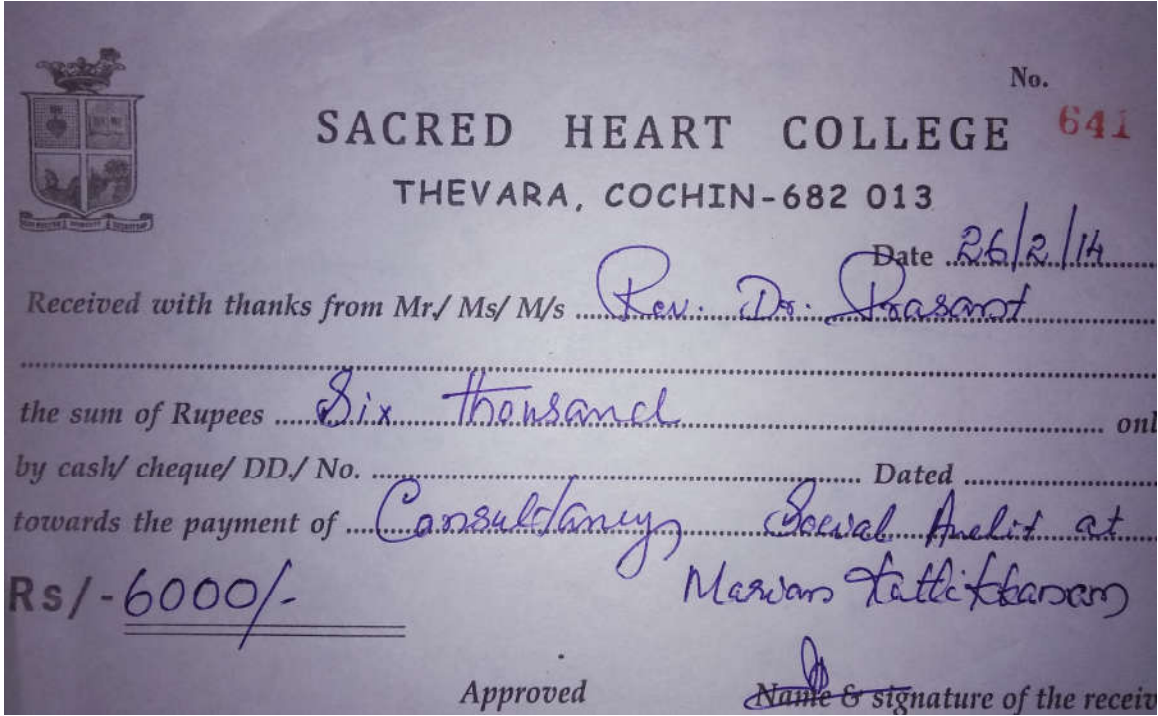 No.
641
SACRED HEART COLLEGE
THEVARA, COCHIN-682 013
Date 26/2/14
Received with thanks from Mr./ Ms/ M/s Rev. Dr. Prasant
the sum of Rupees Six thousand onl
by cash/ cheque/ DD./ No. Dated
towards the payment of Consultancy Social Audit at
Marian
Rs/- 6000/-
Approved Name & signature of the receiv